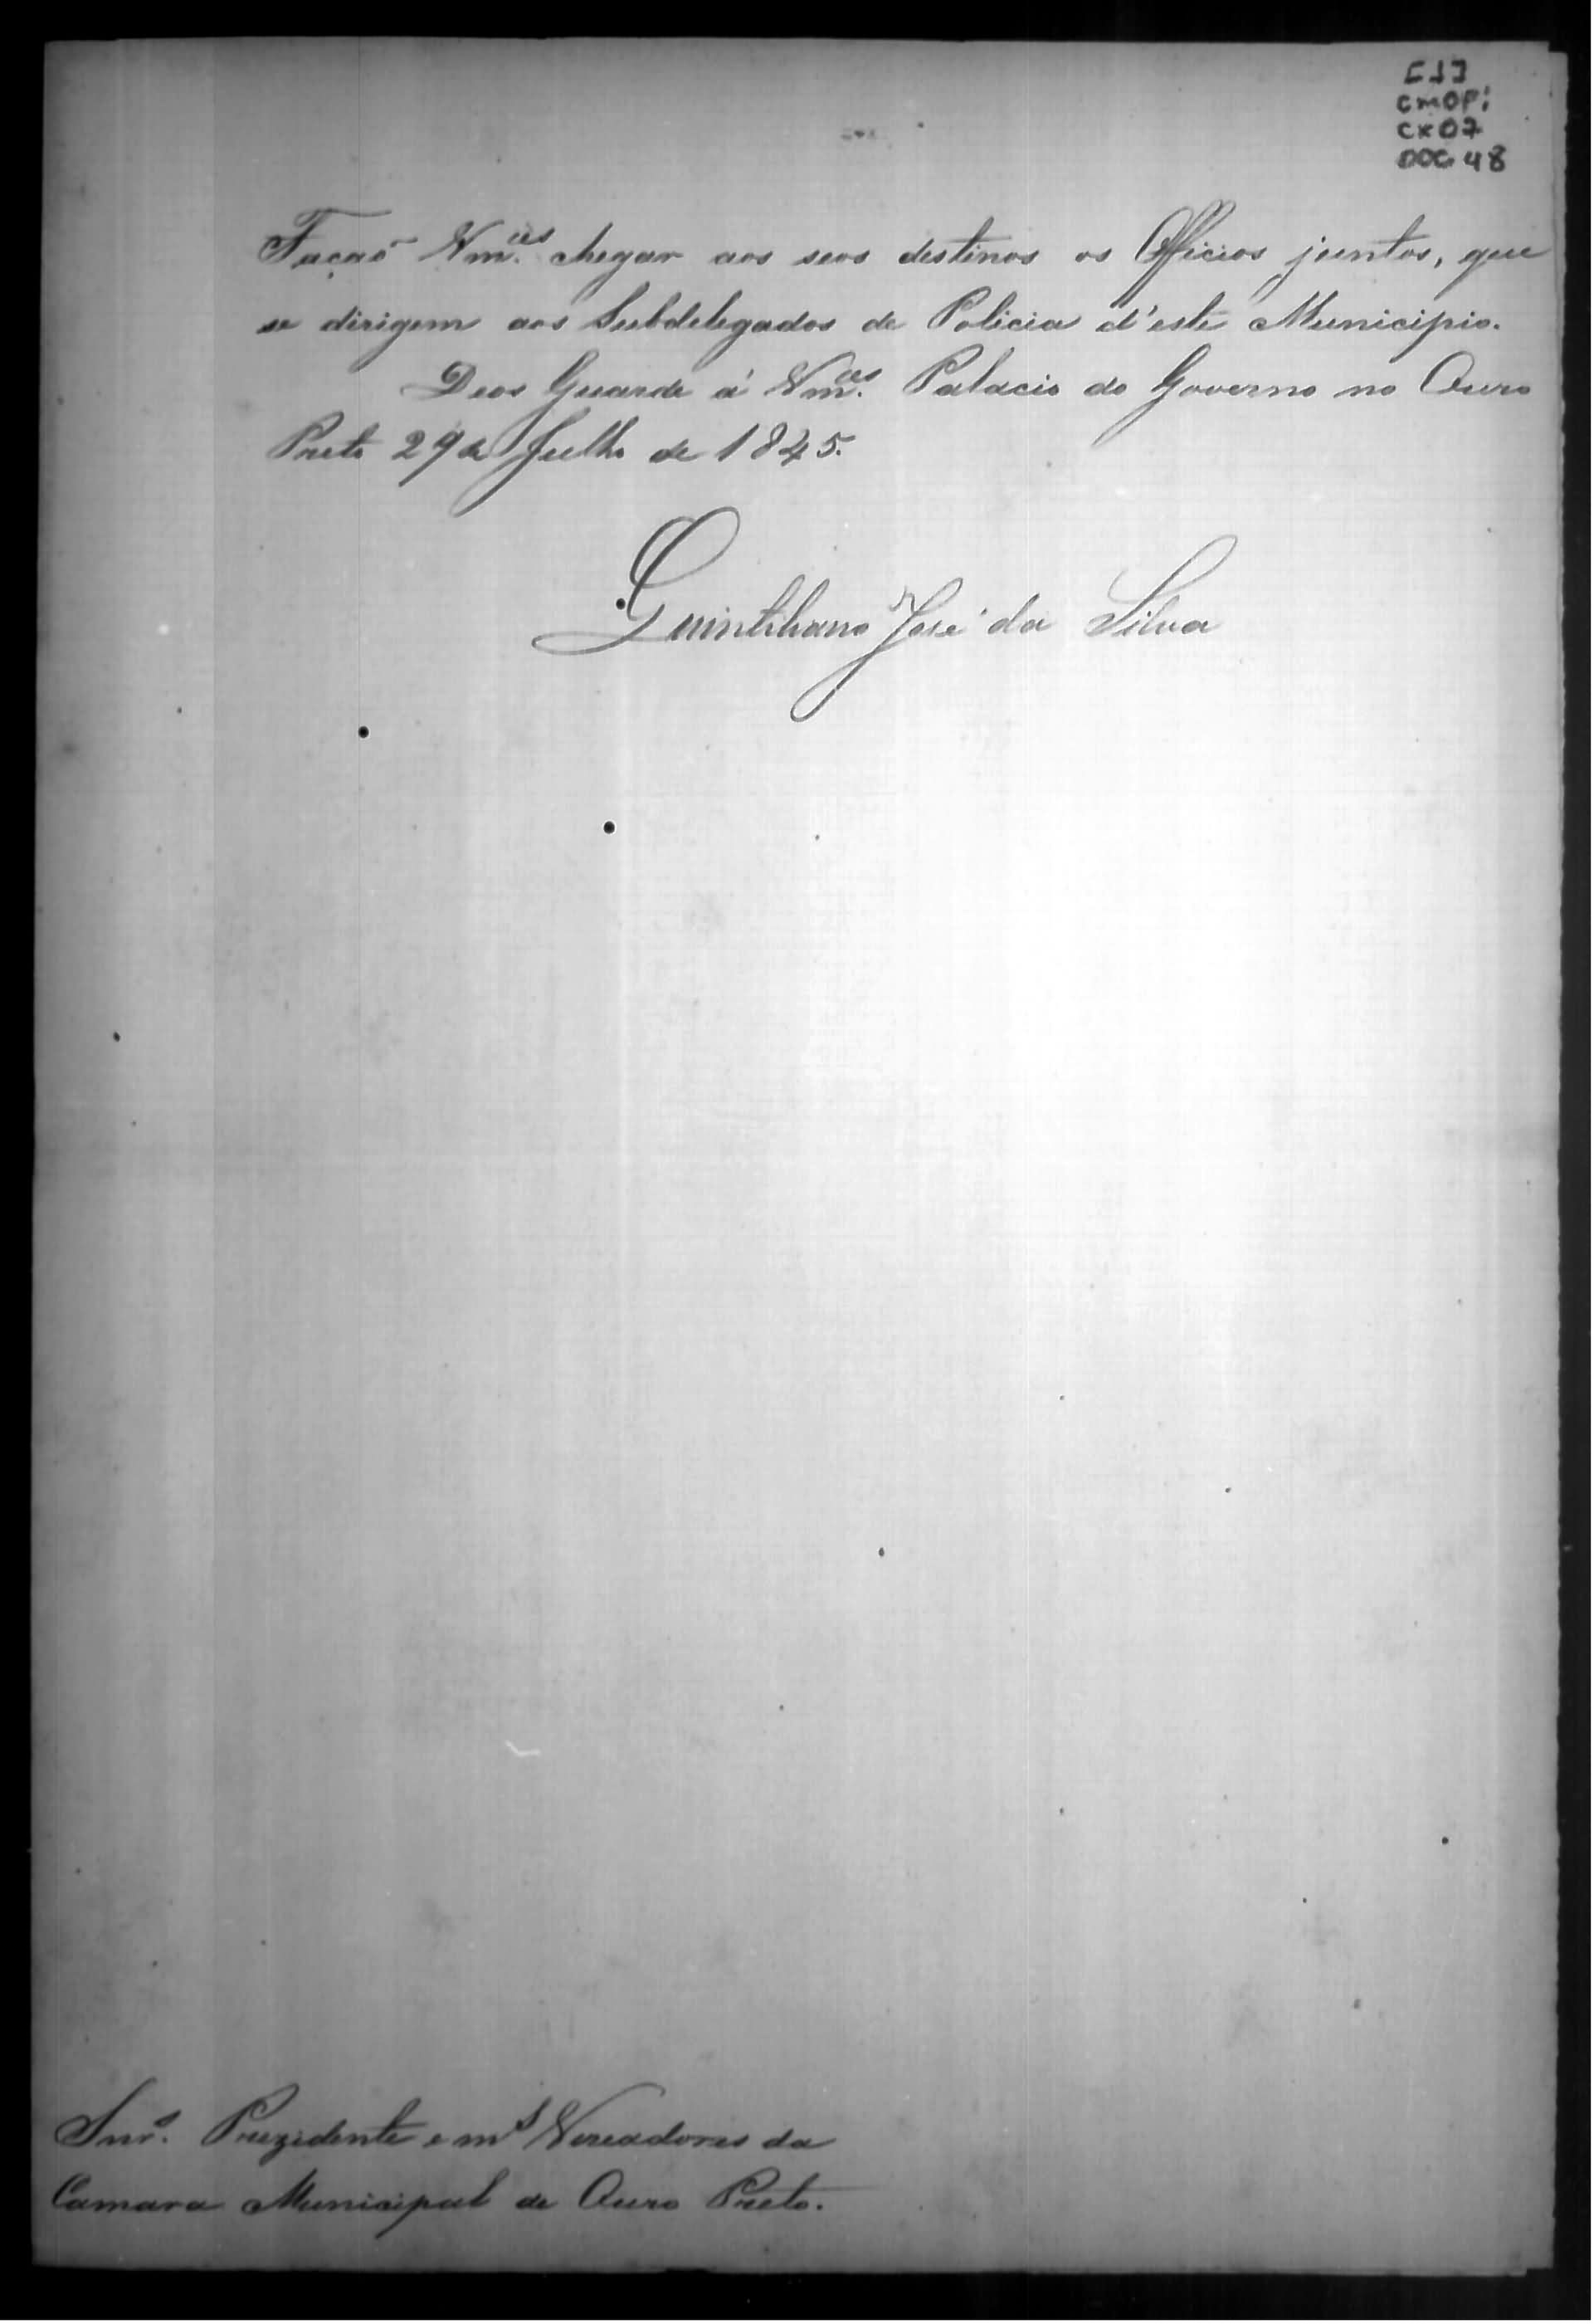 [1]
CMOP:
CX 07
DOC. 48
Façaõ Vm.ces chegar aos seos destinos os Officios juntos, que
se dirigem aos Subdelegados de Policia d'este Municipio.
Deos Guarde á Vm.ces Palacio do Governo no Ouro
Preto 29 de Julho de 1845.
Quintiliano José da Silva
Snr.s Prezidente e m.s Vereadores da
Camara Municipal de Ouro Preto.